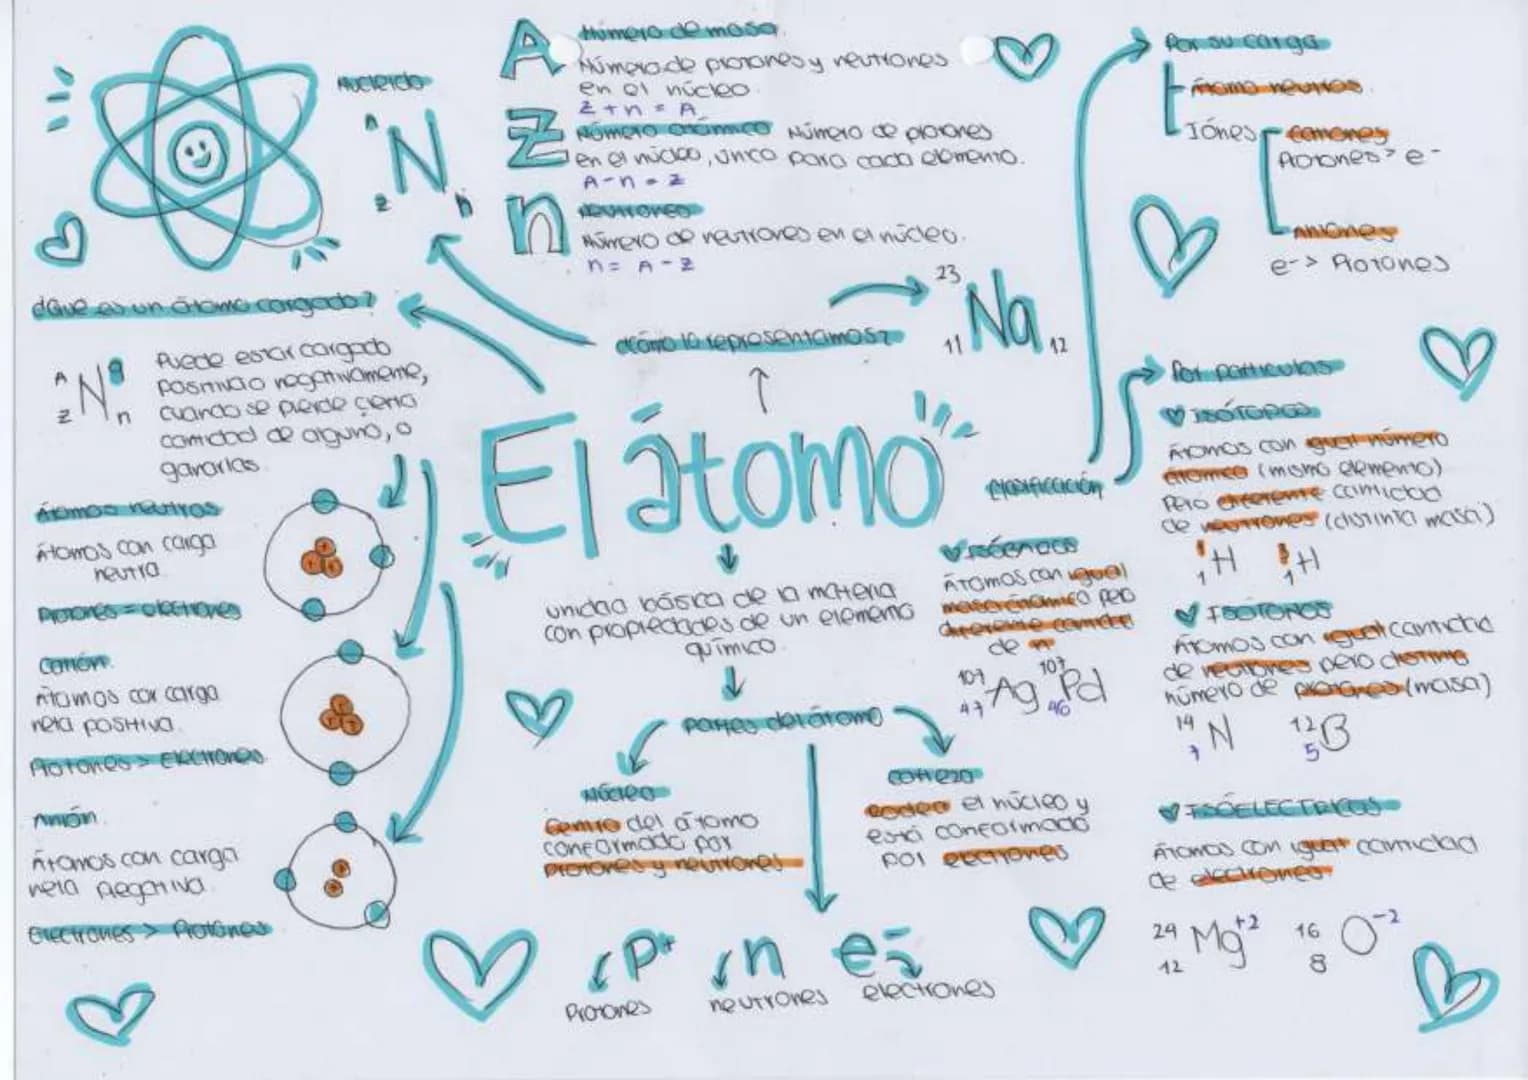 Nucleido
A
N
Z
n
A
Número de masa.
Número de protones y neutrones
en el núcleo.
Z + n = A
Z
Número atómico Número de protones
en el núcleo, único para cada elemento.
A - n = Z
n
Neutrones
Número de neutrones en el núcleo.
n = A - Z
¿Cómo lo representamos?
23
Na
11
12
¿Qué es un átomo cargado?
A
N
q
Z
n
Puede estar cargado
positivao negativamente,
cuando se pierde cierta
cantidad de alguno, o
ganarlas.
Átomos neutros
Átomos con carga
neutra.
Protones = electrones
Catión.
Átomos con carga
neta positiva.
Protones > Electrones.
Anión.
Átomos con carga
neta negativa.
Electrones > Protones
El átomo
unidad básica de la materia
con propiedades de un elemento
químico.
Partes del átomo
Núcleo
Centro del átomo
conformado por
protones y neutrones
Corteza
rodea el núcleo y
está conformado
por electrones
p+
Protones
n
neutrones
e-
electrones
Clasificación
Por su carga
Átomo neutros.
Iónes
Cationes
Protones > e-
Aniones
e-> Protones
Por partículas
Isótopos
Átomos con igual número
atómico (mismo elemento)
pero diferente cantidad
de neutrones (distinta masa)
1
H
1
3
H
1
Isótonos
Átomos con igual cantidad
de neutrones pero distinto
número de protones (masa)
14
N
7
12
B
5
Isóelectricos
Átomos con igual cantidad
de electrones.
24
Mg+2
12
16
O-2
8
Átomos con igual
masa atómica pero
diferente
de n
107
Ag
47
107
Pd
46